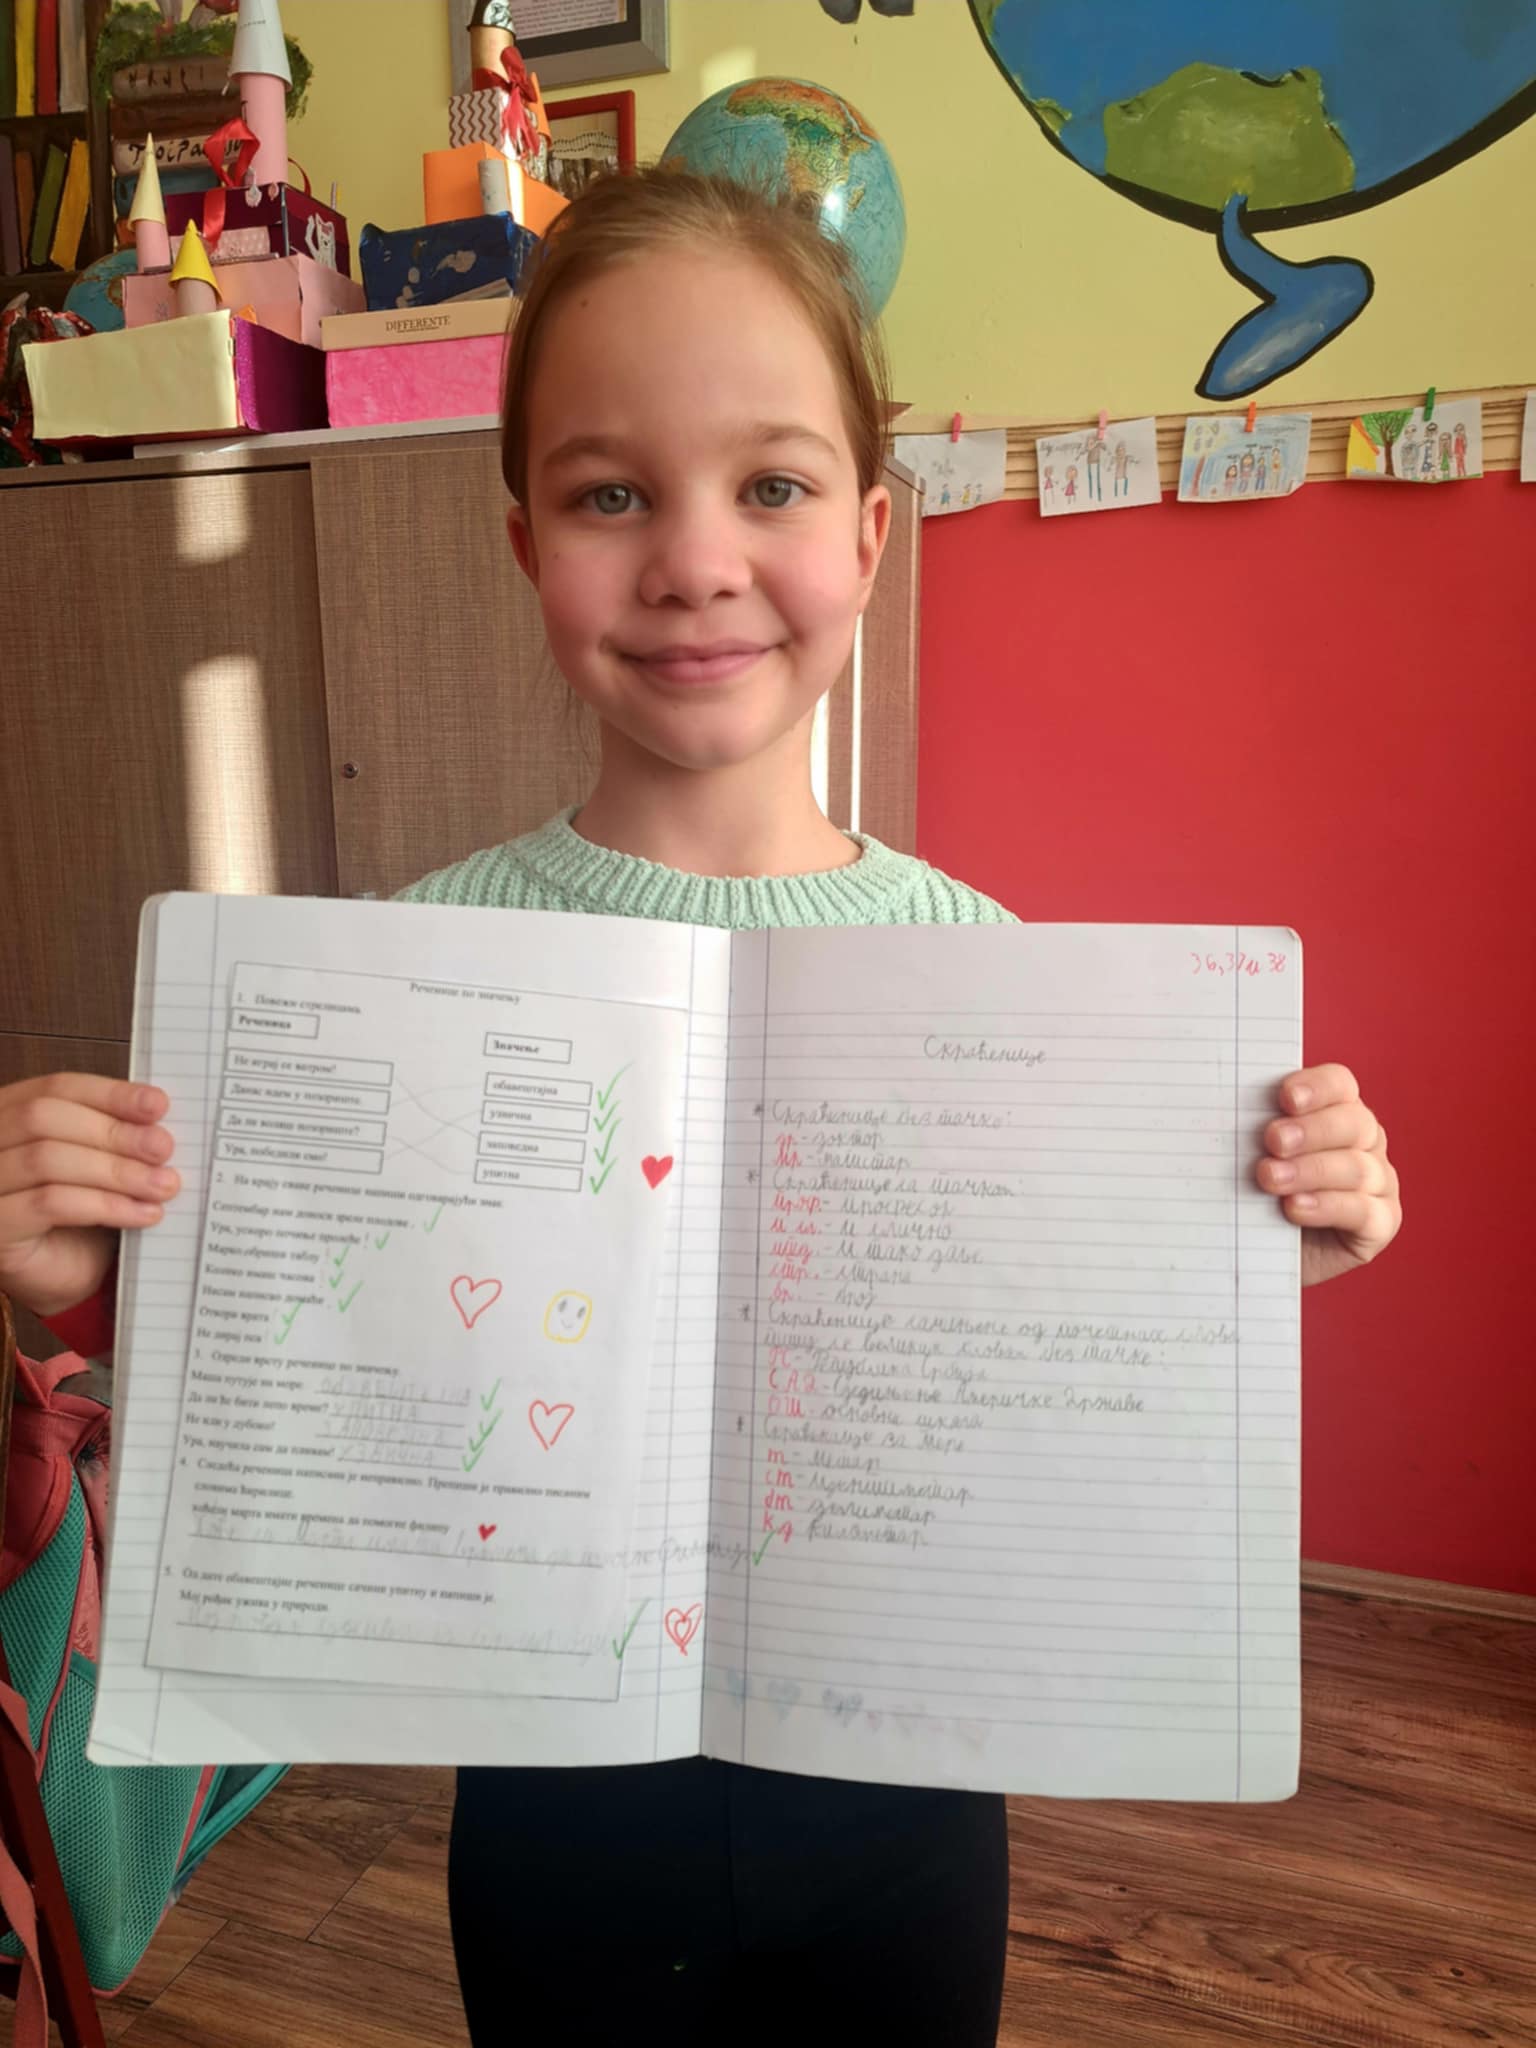 DIFFERENTE
Реченице по значењу
1. Повежи стрелицама
Реченица
Значење
Не играј се ватром!
Данас идем у позориште.
Да ли волиш позориште?
Ура, победили смо!
обавештајна
узвична
заповедна
упитна
2. На крају сваке реченице напиши одговарајући знак.
Септембар нам доноси зреле плодове .
Ура, ускоро почиње пролеће !
Марко,обриши таблу !
Колико имаш часова
Нисам написао домаће .
Отвори врата !
Не дирај пса !
3. Одреди врсту реченице по значењу.
Маша путује на море. ОБАВЕШТАЈНА
Да ли ће бити лепо време? УПИТНА
Не иди у дубоко! ЗАПОВЕДНА
Ура, научила сам да пливам! УЗВИЧНА
4. Следећа реченица написана је неправилно. Препиши је правилно писаним
словима ћирилице.
хоћели марта имати времена да помогне филипу
Хоће ли Марта имати времена да помогне Филипу
5. Од дате обавештајне реченице сачини упитну и напиши је.
Мој рођак ужива у природи.
36, 37 и 38
Скраћенице
* Скраћенице без тачке:
др - доктор
мр - магистар
* Скраћенице са тачком:
проф. - професор
и сл. - и слично
итд. - и тако даље
стр. - страна
бр. - број
* Скраћенице од почетних слова
пишу се великим словом без тачке:
РС - Република Србија
САД - Сједињене Америчке Државе
ОШ - основна школа
* Скраћенице за мере
m - метар
cm - центиметар
dm - дециметар
километар